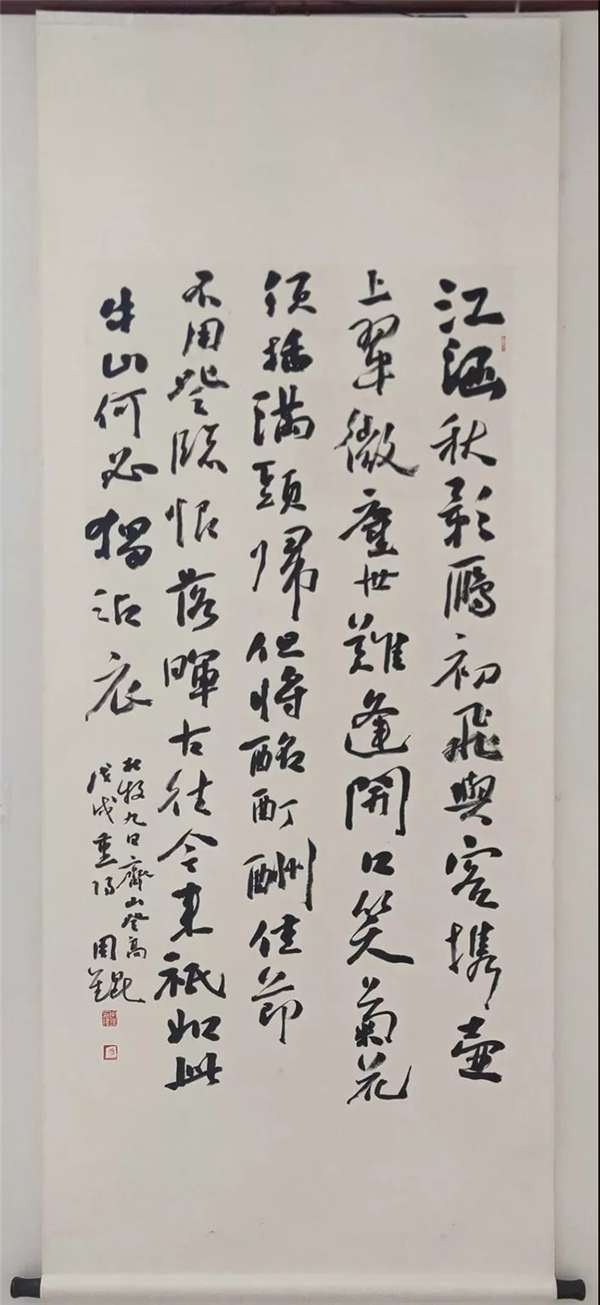 江涵秋影鴈初飛與客攜壺
上翠微塵世難逢開口笑菊花
須插滿頭歸但將酩酊酬佳節
不用登臨恨落暉古往今來祇如此
牛山何必獨沾衣
杜牧九日齊山登高
戊戌重陽 周